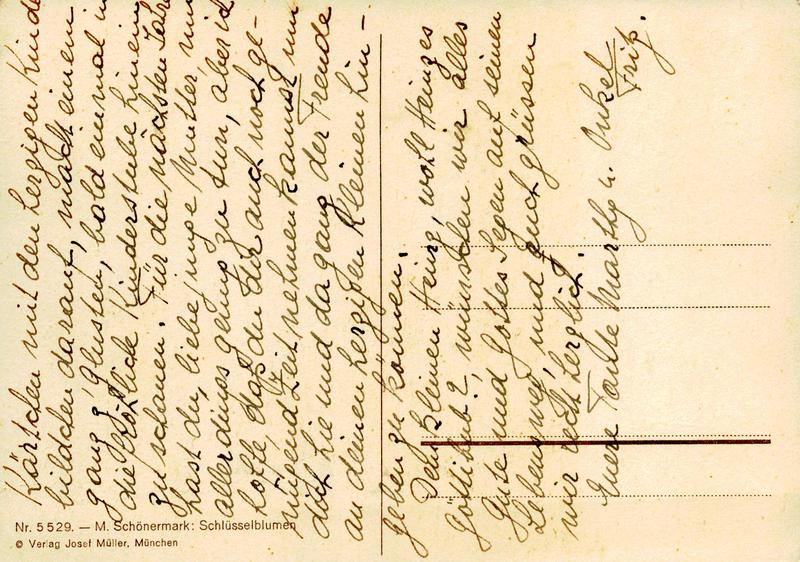 Kärtchen mit den herzigen Kinde
bildchen darauf, macht einem
ganz z'Glusten, bald einmal in
die fröhliche Kinderstube hinein
zu schauen. Für die nächsten Jahre
hast du, liebe junge Mutter, nun
allerdings genug zu tun, aber ich
hoffe daß du dir auch noch ge-
nügend Zeit nehmen kannst um
dich hie und da ganz der Freude
an deinen herzigen Kleinen hin-
geben zu können.
Dem kleinen Heinz, wohl Heinzes
Göttibub?, wünschen wir alles
Gute und Gottes Segen auf seinen
Lebensweg, und Euch grüssen
wir recht herzlich.
Eure Tante Marthy u. Onkel
Fritz.
Nr. 5529. — M. Schönermark: Schlüsselblumen
© Verlag Josef Müller, München